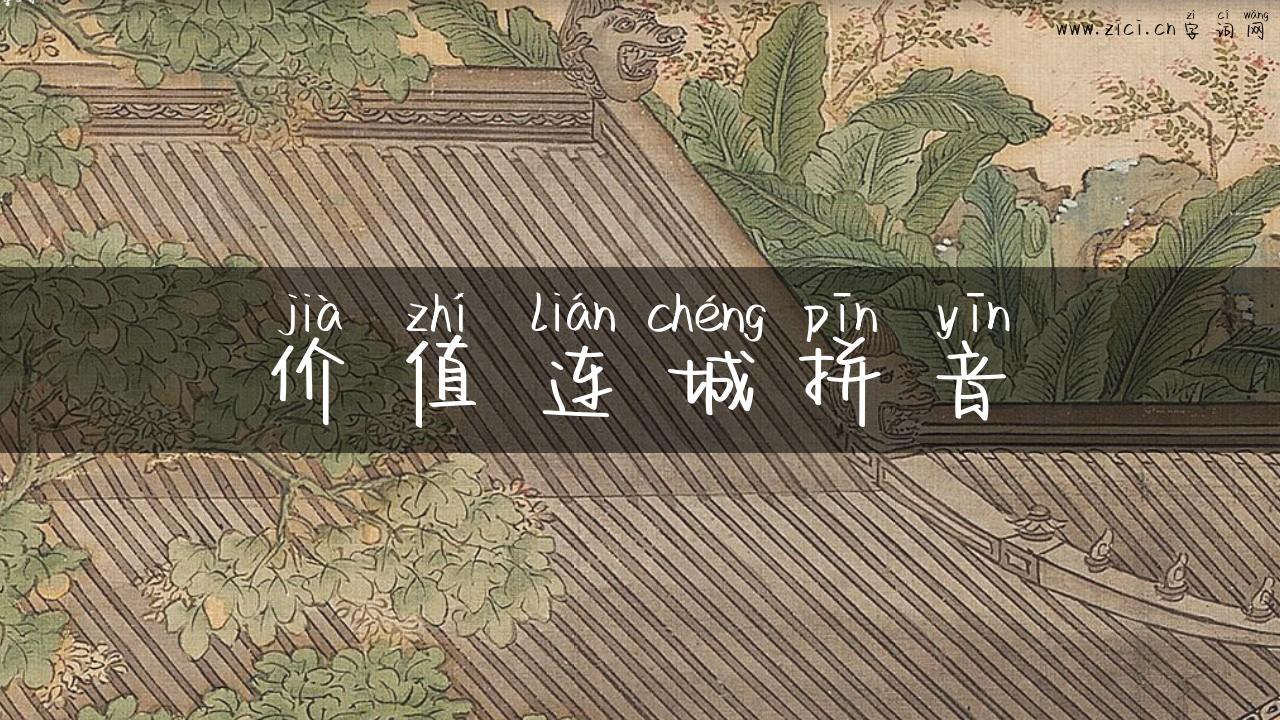 zì cí wǎng
www.zici.cn 字词网
jià zhí lián chéng pīn yīn
价值连城拼音